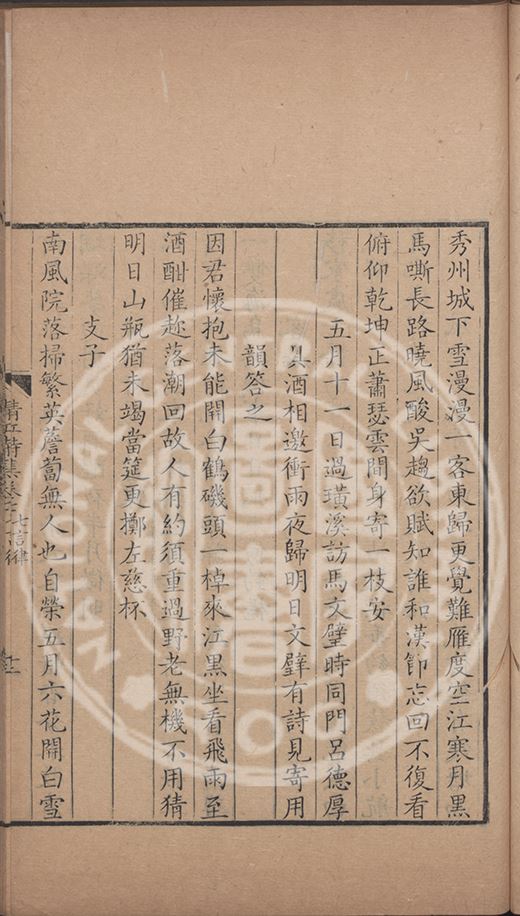 秀州城下雪漫漫一客東歸更覺難雁度空江寒月黑
馬嘶長路曉風酸吳趨欲賦知誰和漢節忘回不復看
俯仰乾坤正蕭瑟雲間身寄一枝安
五月十一日過璜溪訪馬文璧時同門呂德厚
具酒相邀衝雨夜歸明日文璧有詩見寄用
韻答之
因君懷抱未能開白鶴磯頭一棹來江黑坐看飛雨至
酒酣催趂落潮回故人有約須重過野老無機不用猜
明日山瓶猶未竭當筵更擲左慈杯
支子
南風院落掃繁英薝蔔無人也自榮五月六花開白雪
清江詩集卷之 七言律 十一